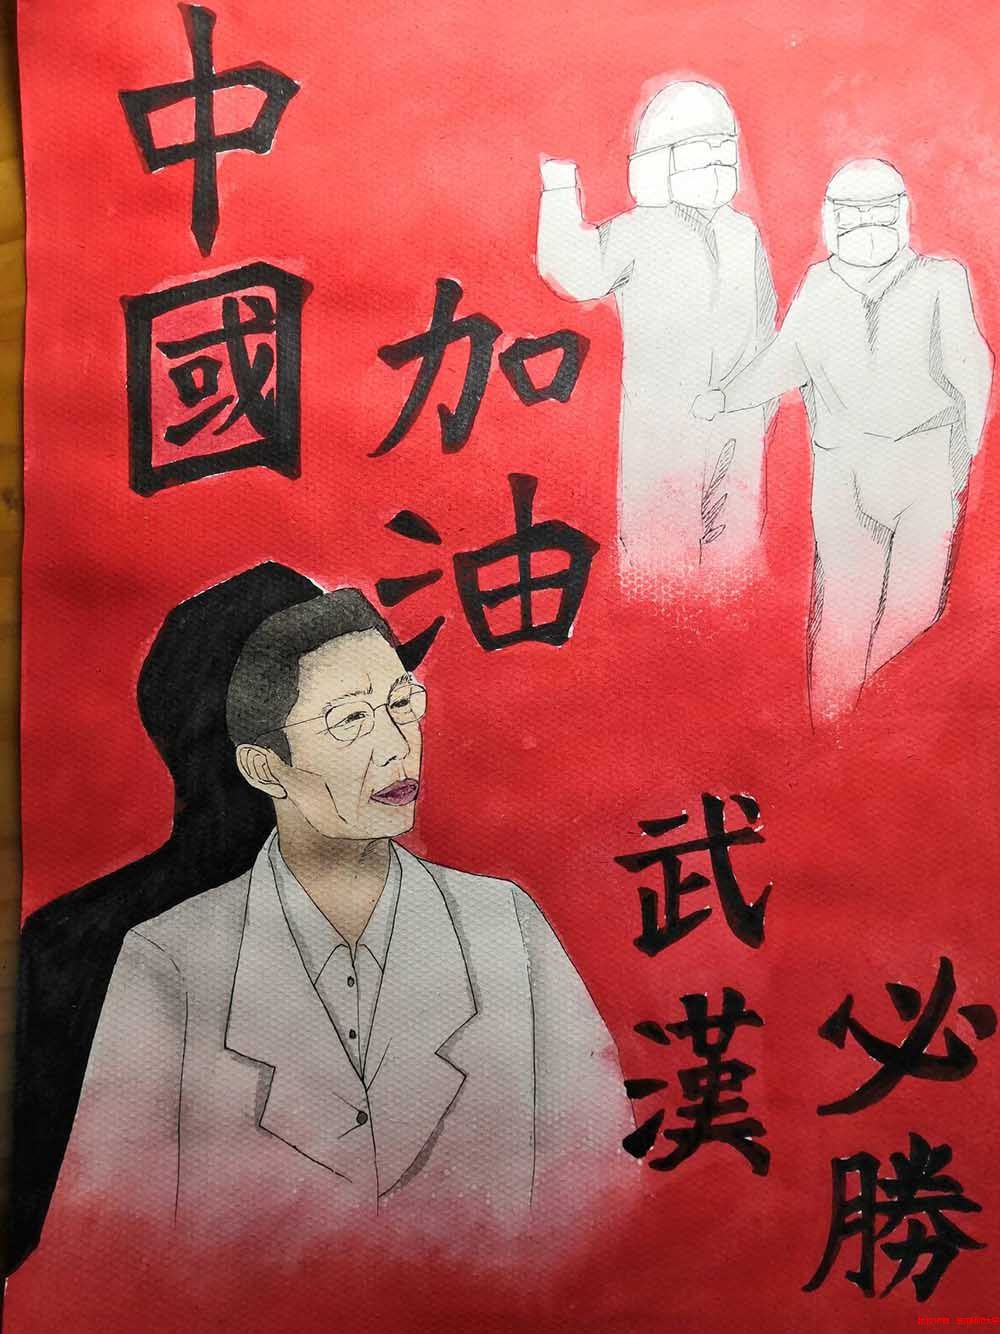 中國
加油
武漢
必勝